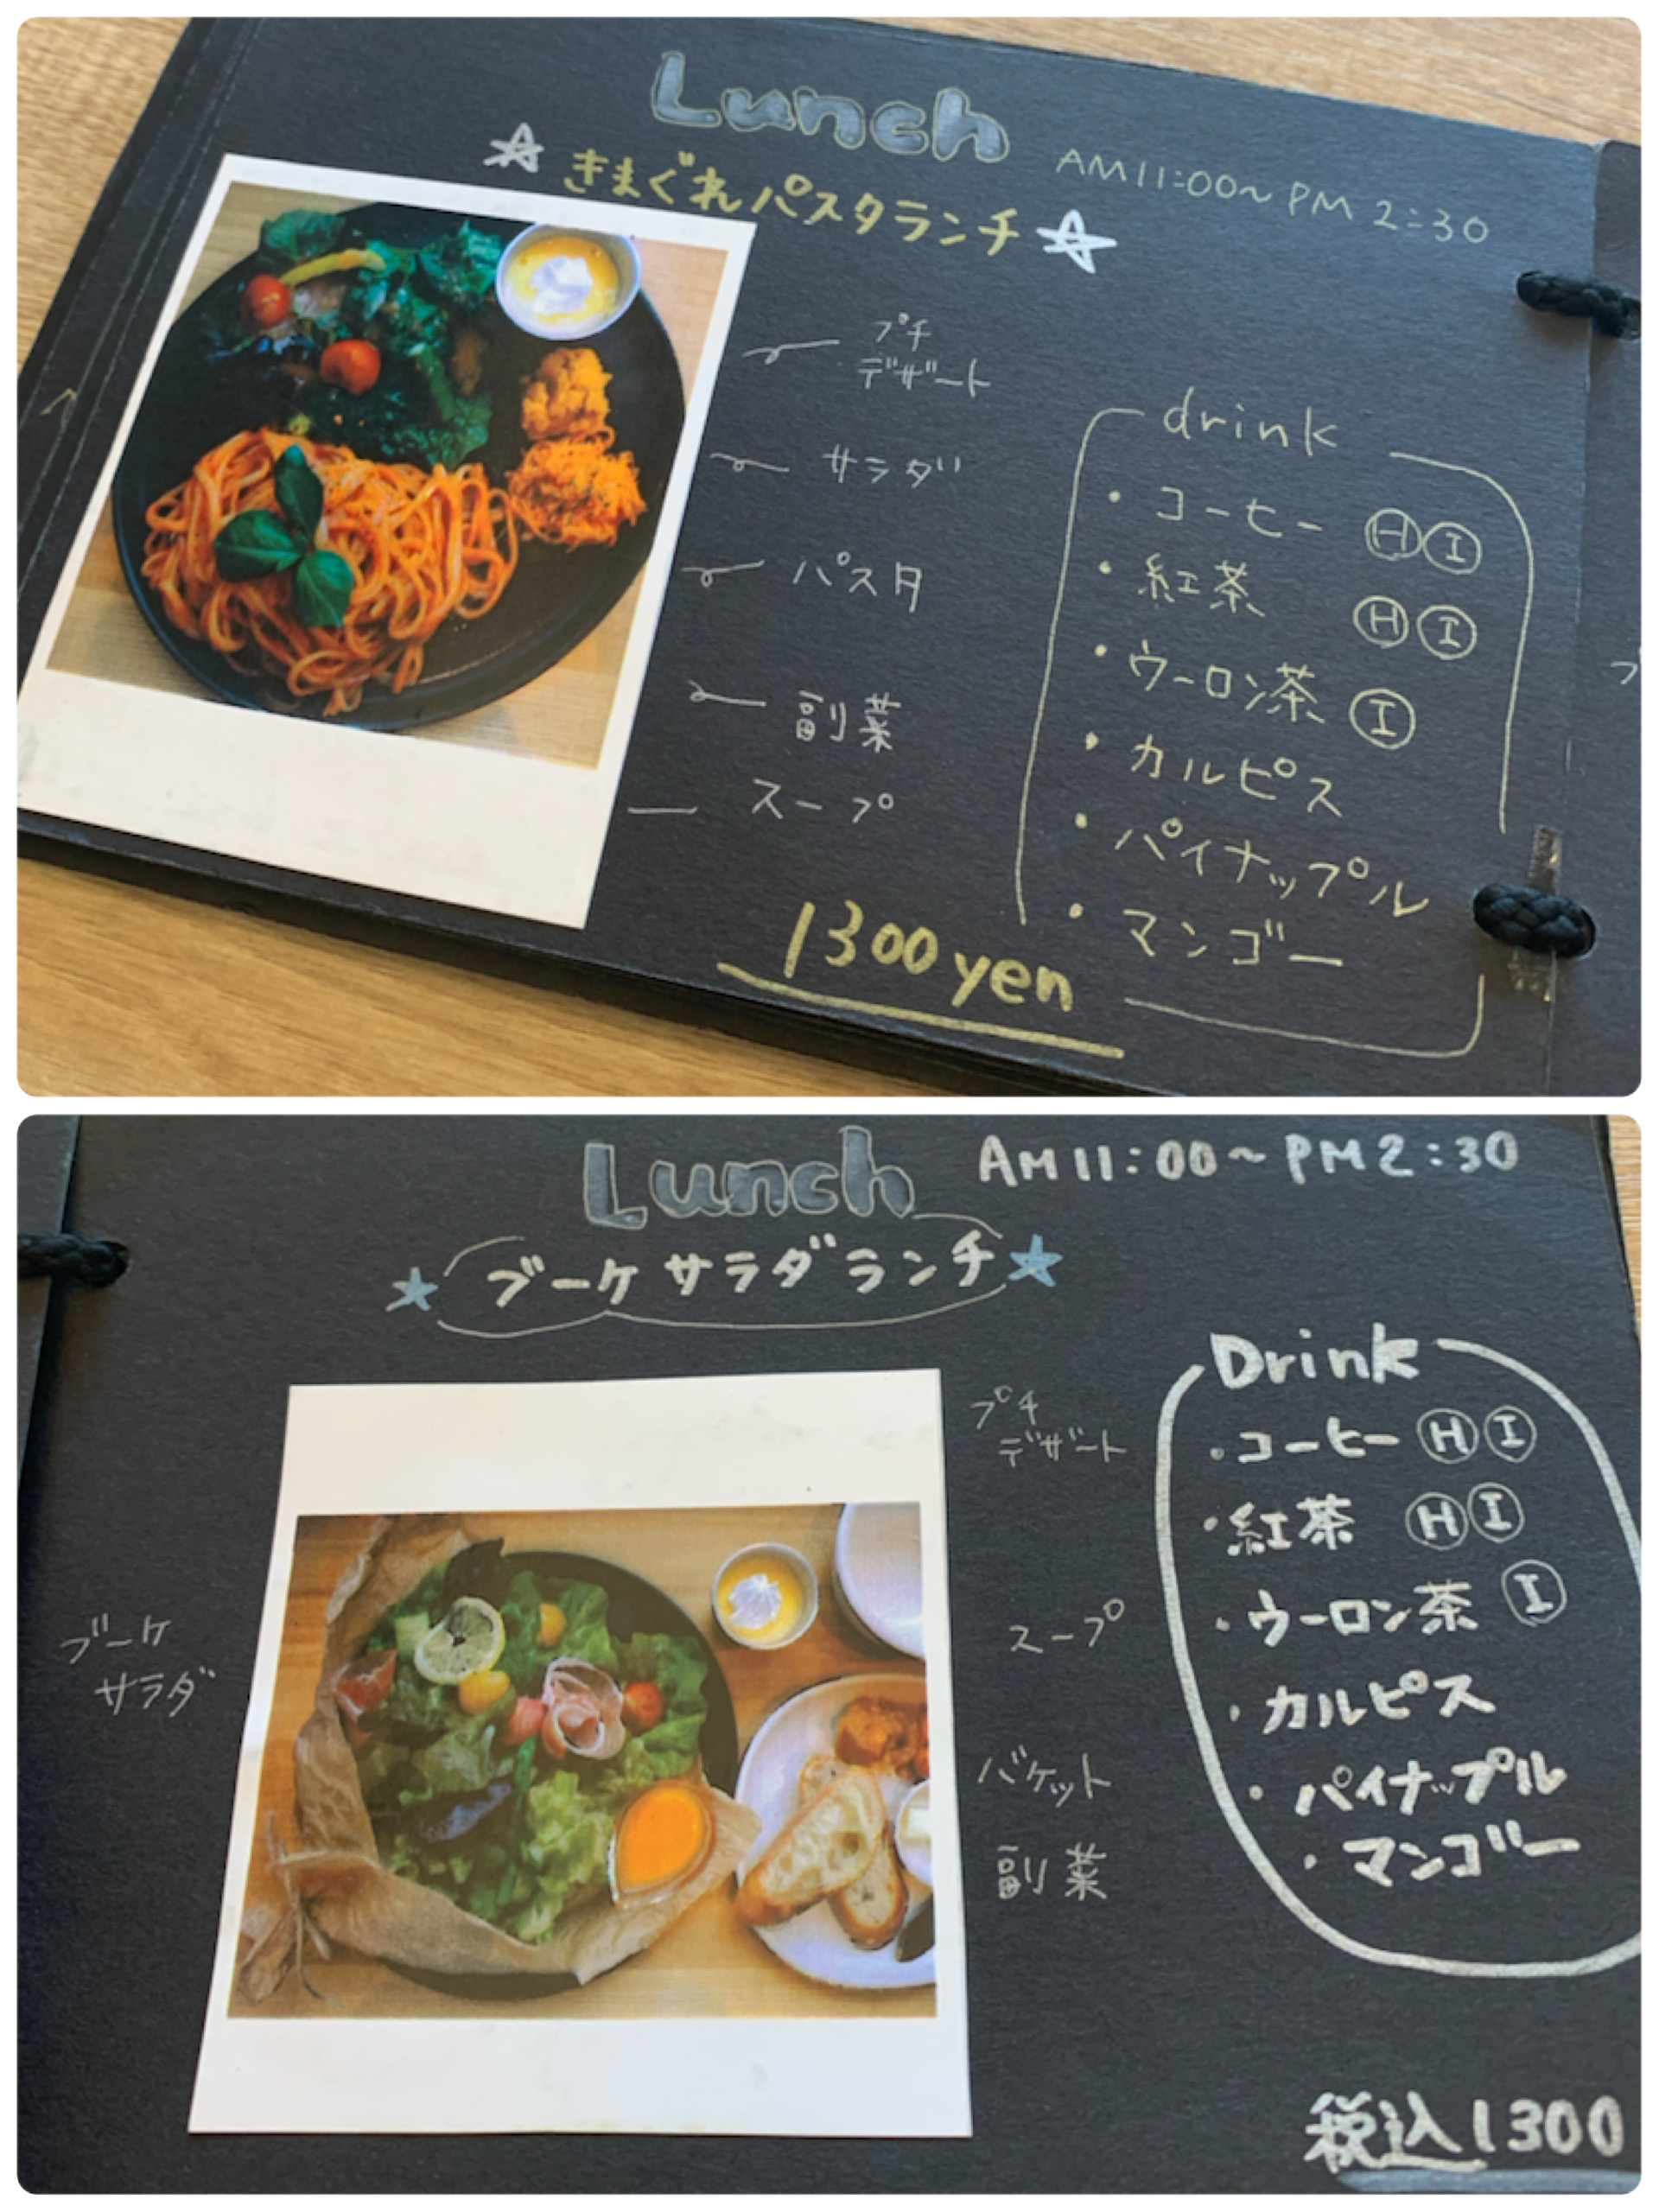 Lunch
AM11:00~PM 2:30
☆きまぐれパスタランチ☆
プチ
デザート
サラダ
パスタ
副菜
スープ
1300yen
drink
・コーヒー Ⓗ Ⓘ
・紅茶 Ⓗ Ⓘ
・ウーロン茶 Ⓘ
・カルピス
・パイナップル
・マンゴー
Lunch
AM11:00~PM2:30
★ブーケサラダランチ★
ブーケ
サラダ
プチ
デザート
スープ
バケット
副菜
Drink
・コーヒー Ⓗ Ⓘ
・紅茶 Ⓗ Ⓘ
・ウーロン茶 Ⓘ
・カルピス
・パイナップル
・マンゴー
税込1300